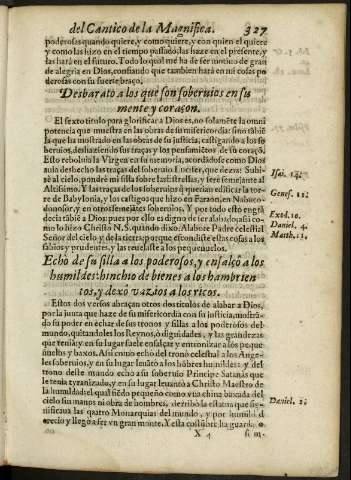 del Cantico de la Magnifica. 327
poderosas quando quiere, y como quiere, y con quien el quiere
y como las hizo en el tiempo passado, las haze en el presente, y
las hará en el futuro. Todo lo qual me ha de ser motiuo de gran
de alegria en Dios, confiando que tambien hará en mi cosas po
derosas con su fuerte braço.
Desbarató a los que son soberuios en su
mente y coraçon.
El sexto titulo para glorificar a Dios es, no solamẽte la omni
potencia que muestra en las obras de su misericordia: sino tãbiẽ
la que ha mostrado en las obras de su justicia, castigando a los so
beruios, deshaziendo sus traças y los pensamiẽtos de su coraçõ.
Esto reboluia la Virgen en su memoria, acordãdose como Dios
auia deshecho las traças del soberuio Lucifer, que dezia: Subi-
rè al cielo, pondrè mi silla sobre las estrellas, y serè semejante al
Altissimo. Y las traças de los soberuios q̃ querian edificar la tor-
re de Babylonia, y los castigos que hizo en Faraon, en Nabuco-
donosor, y en otros semejãtes soberuios. Y por todo esto engrã
decia tãbiẽ a Dios: pues por ello es digno de ser alabado, assi co-
mo lo hizo Christo N.S. quando dixo. Alabote Padre celestial
Señor del cielo y de la tierra: porque escondiste estas cosas a los
sabios y prudentes, y las reuelaste a los pequeñuelos.
Isai. 14.
Genes. 11.
Exod. 10.
Daniel. 4.
Matth. 11.
Echò de su silla a los poderosos, y ensalçò a los
humildes: hinchio de bienes a los hambrien
tos, y dexò vazios a los ricos.
Estos dos versos abraçan otros dos titulos de alabar a Dios,
por la junta que haze de su misericordia con su justicia, mostrã-
do su poder en echar de sus tronos y sillas a los poderosos del
mundo, quitandoles los Reynos, ò dignidades, y las grandezas
que tenia, y en su lugar suele ensalçar y entronizar a los peque
ñuelos y baxos. Assi como echò del trono celestial a los Ange-
les soberuios, y en su lugar leuãtò a los hõbres humildes: y del
trono deste mundo echo a su soberuio Principe Satanàs que
le tenia tyranizado, y en su lugar leuantò a Christo Maestro de
la humildad: el qual siẽdo pequeño como vna china bixada del
cielo sin manos ni obra de hombres, derribò la estatua que sig-
nificaua las quatro Monarquias del mundo, y por humildad
crecio y llegò a ser vn gran monte. Y esta costũbre ha guarda
Daniel. 2.
X 4 si m-